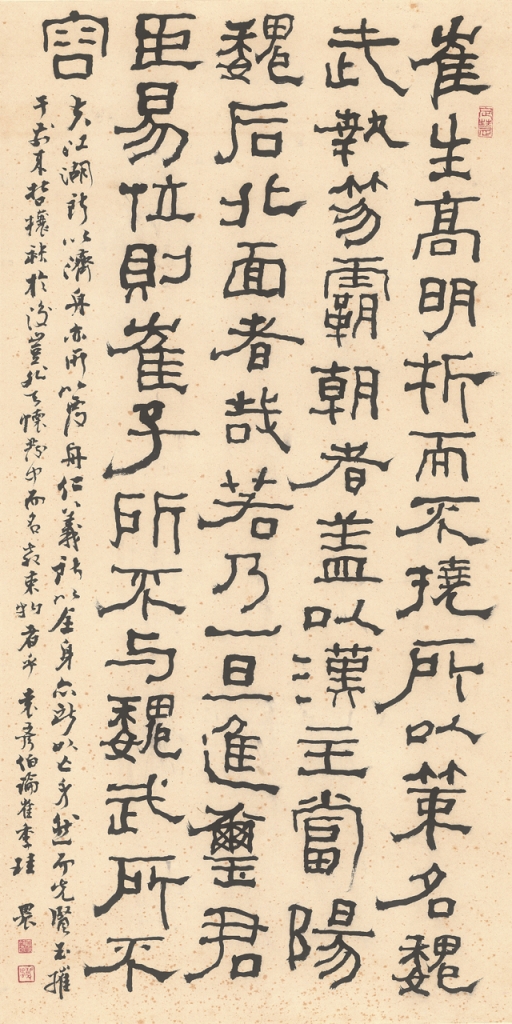 崔生髙明折而不撓所以策名魏
武執笏霸朝者盖以漢主當陽
魏后北面者哉若乃一旦進璽君
臣易位則崔子所不与魏武所不
容
夫江湖所以濟舟亦所以覆舟仁義所以全身亦所以亡身然而先賢玉摧
于前来哲攘袂於後豈非天懷發中而名教束物者乎 袁彦伯論崔季珪